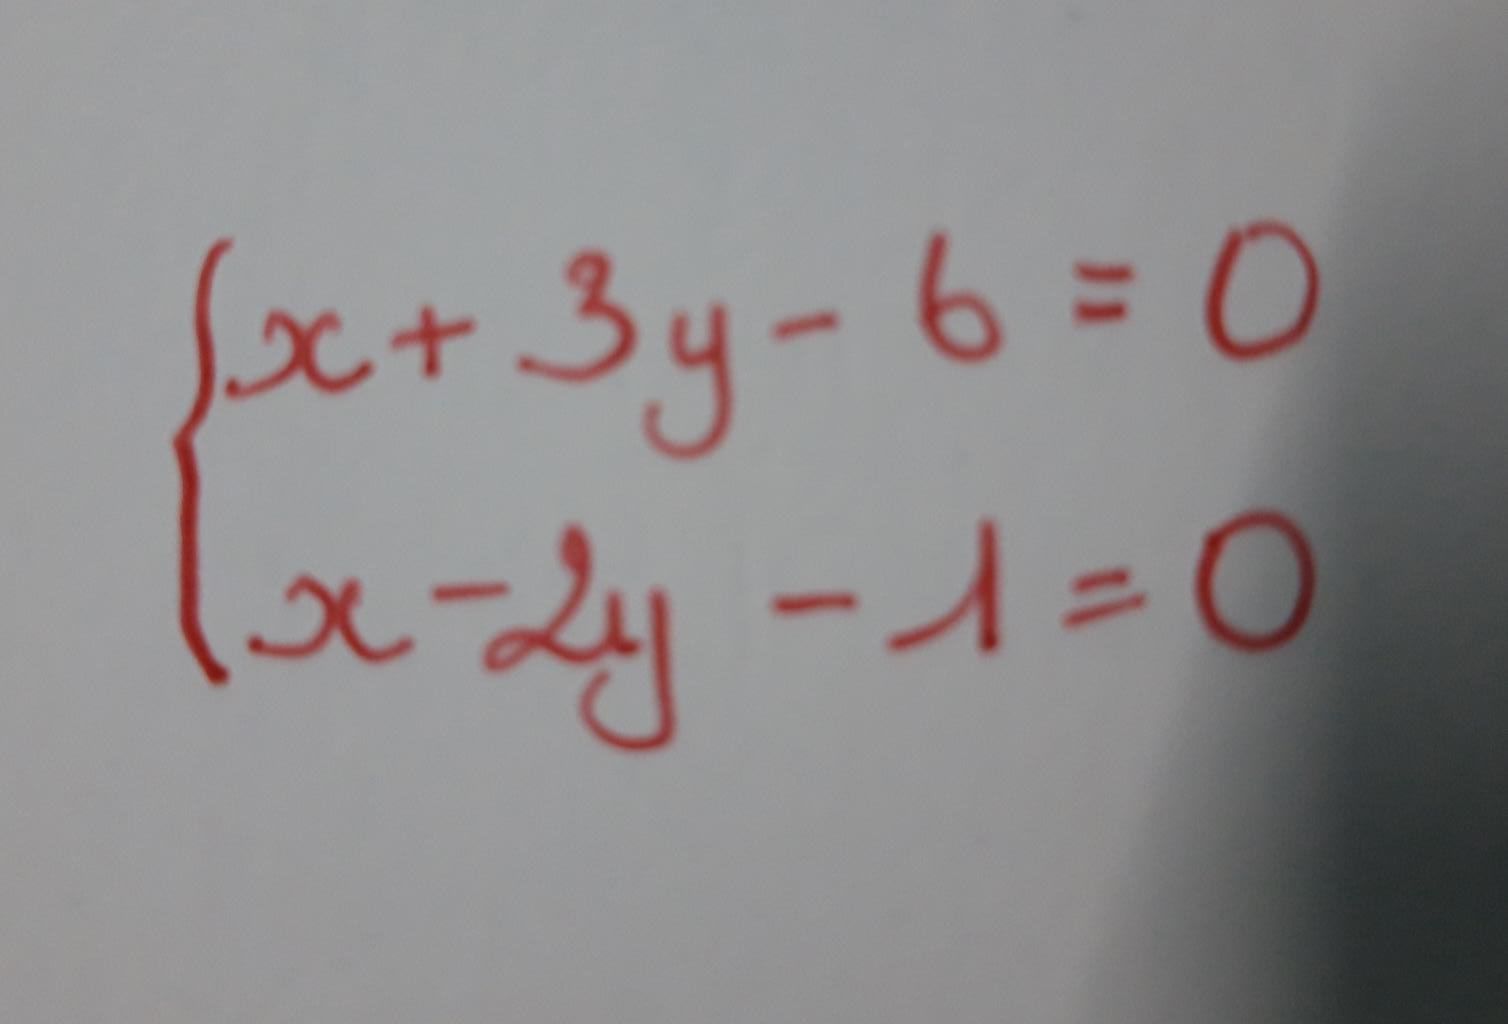 x + 3y - 6 = 0
x - 2y - 1 = 0